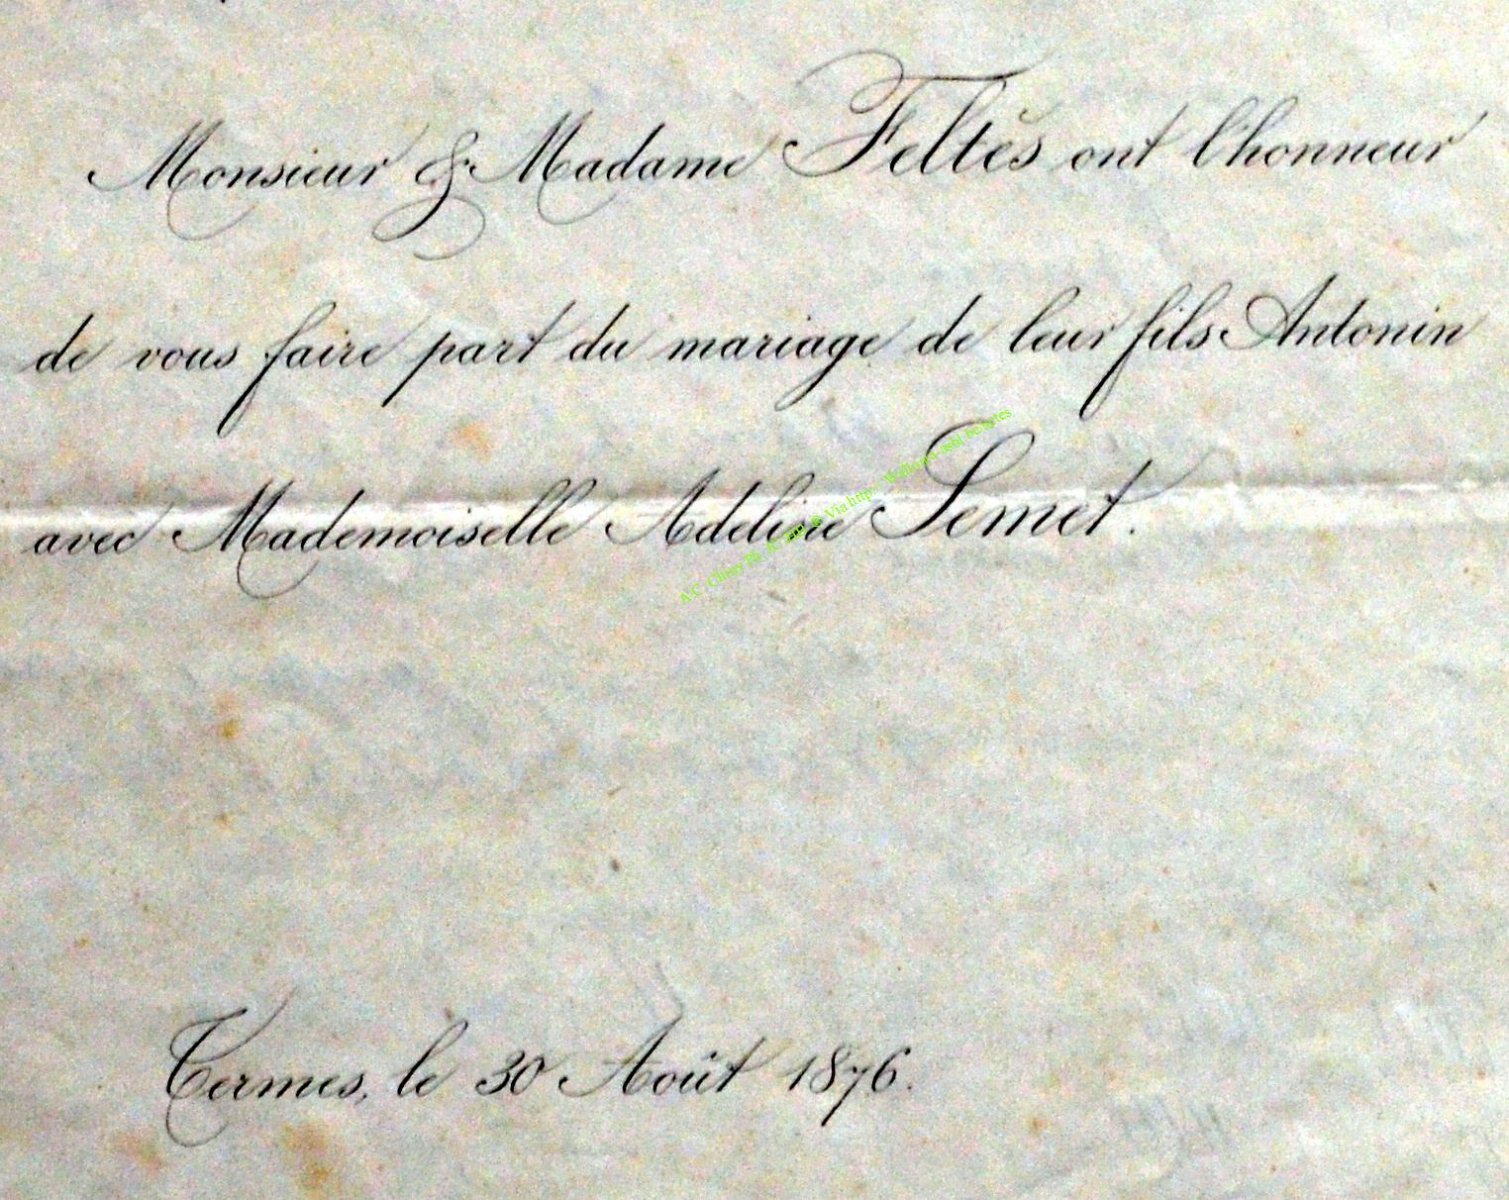 Monsieur & Madame Feltès ont l'honneur
de vous faire part du mariage de leur fils Antonin
avec Mademoiselle Adeline Semet.
Termes, le 30 Août 1876.